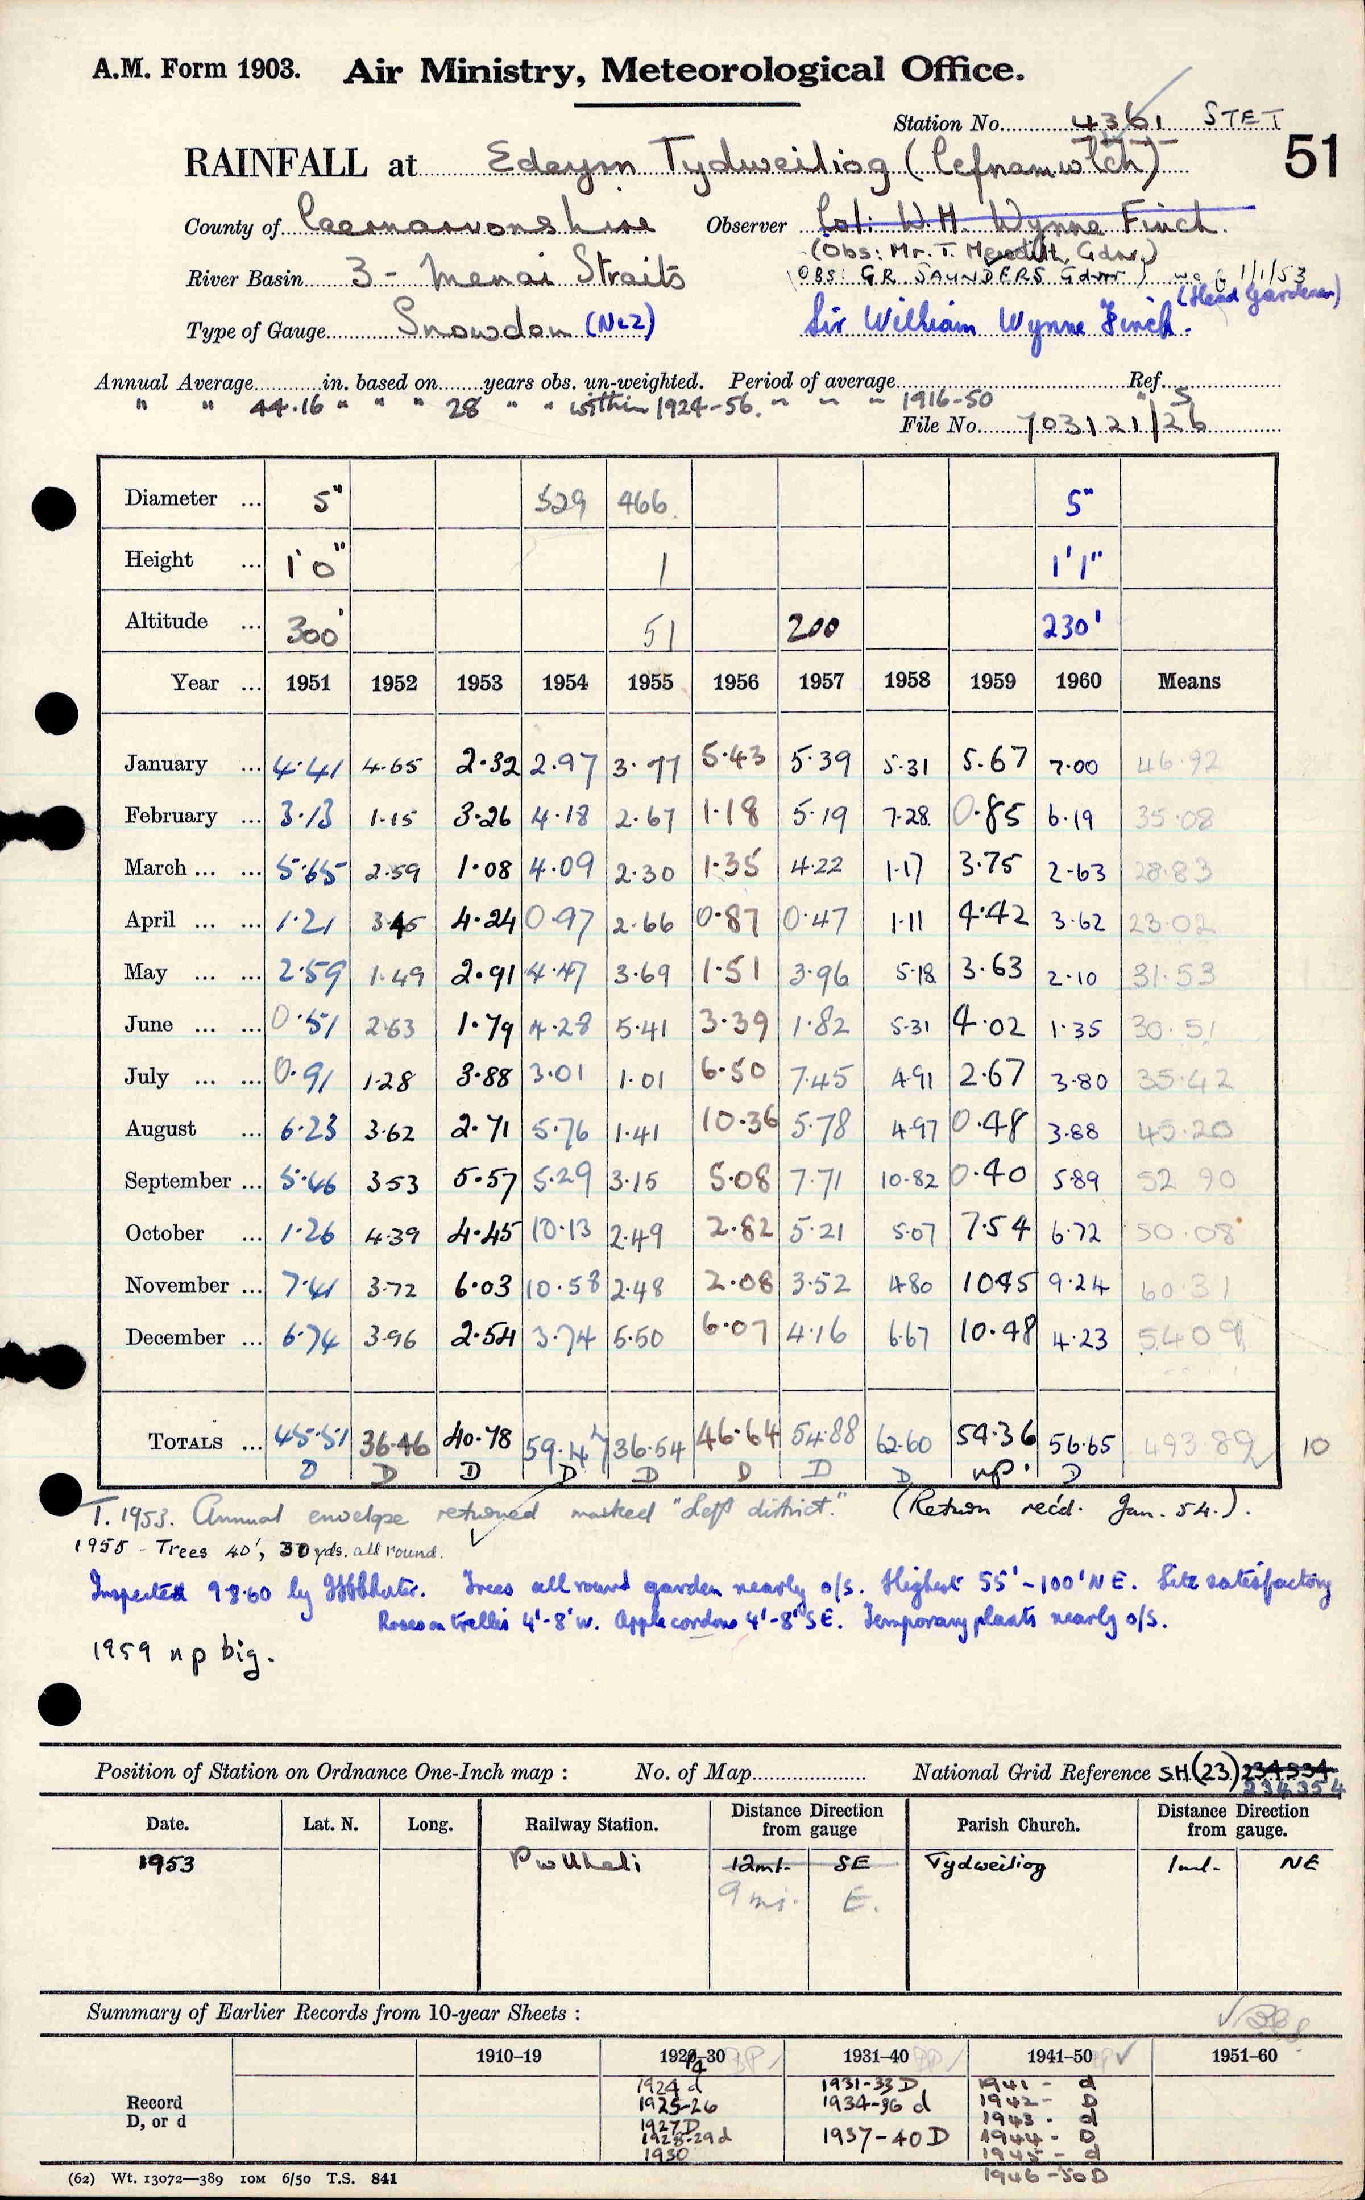 A.M. Form 1903. Air Ministry, Meteorological Office.
Station No. 4361 STET
51
RAINFALL at Edeyrn Tydweiliog (Cefnamwlch)
County of Caernarvonshire Observer Col: W.H. Wynne Finch.
(Obs: Mr. T. Meredith, Gdnr)
River Basin 3 - Menai Straits (OBS: G.R. SAUNDERS. Gdnr) 1/1/53
(Head Gardener)
Type of Gauge Snowdon (No2) Sir William Wynne Finch.
Annual Average in. based on years obs. un-weighted. Period of average Ref.
" " 44.16 " " " 28 " " within 1924-56. " " " 1916-50 " S
File No. 703121/26
Diameter ... 5" 529 466 5"
Height ... 1'0" 1 1'1"
Altitude ... 300' 51 200 230'
Year ... 1951 1952 1953 1954 1955 1956 1957 1958 1959 1960 Means
January ... 4.41 4.65 2.32 2.97 3.77 5.43 5.39 5.31 5.67 7.00 46.92
February ... 3.13 1.15 3.26 4.18 2.67 1.18 5.19 7.28 0.85 6.19 35.08
March ... ... 5.65 2.59 1.08 4.09 2.30 1.35 4.22 1.17 3.75 2.63 28.83
April ... ... 1.21 3.45 4.24 0.97 2.66 0.87 0.47 1.11 4.42 3.62 23.02
May ... ... 2.59 1.49 2.91 4.47 3.69 1.51 3.96 5.18 3.63 2.10 31.53
June ... ... 0.51 2.63 1.79 4.28 5.41 3.39 1.82 5.31 4.02 1.35 30.51
July ... ... 0.91 1.28 3.88 3.01 1.01 6.50 7.45 4.91 2.67 3.80 35.42
August ... 6.23 3.62 2.71 5.76 1.41 10.36 5.78 4.97 0.48 3.88 45.20
September ... 5.46 3.53 5.57 5.29 3.15 5.08 7.71 10.82 0.40 5.89 52 90
October ... 1.26 4.39 4.45 10.13 2.49 2.82 5.21 5.07 7.54 6.72 50.08
November ... 7.41 3.72 6.03 10.58 2.48 2.08 3.52 4.80 10.45 9.24 60.31
December ... 6.74 3.96 2.54 3.74 5.50 6.07 4.16 6.67 10.48 4.23 54.09
TOTALS ... 45.51 36.46 40.78 59.47 36.54 46.64 54.88 62.60 54.36 56.65 493.89 10
D D D D D D D D np. D
T. 1953. Annual envelope returned marked "Left district." (Return rec'd. Jan. 54.).
1955 - Trees 40', 30 yds. all round.
Inspected 9.8.60 by Trees all round garden nearly o/s. Highest 55'-100' NE. Site satisfactory
Roses on trellis 4'-8' W. Apple cordons 4'-8' SE. Temporary plants nearly o/s.
1959 np big.
Position of Station on Ordnance One-Inch map : No. of Map National Grid Reference S.H.(23) 234334
234354
Date. Lat. N. Long. Railway Station. Distance Direction from gauge Parish Church. Distance Direction from gauge.
1953 Pwllheli 12ml. SE Tydweiliog 1ml. NE
9 mi. E.
Summary of Earlier Records from 10-year Sheets :
1910-19 1920-30 1931-40 1941-50 1951-60
Record D, or d
1924 d 1931-33 D 1941 - d
1925-26 1934-36 d 1942 - D
1927 D 1943 - d
1928-29 d 1937-40 D 1944 - D
1930 1945 - d
1946-50 D
(62) Wt. 13072—389 10M 6/50 T.S. 841